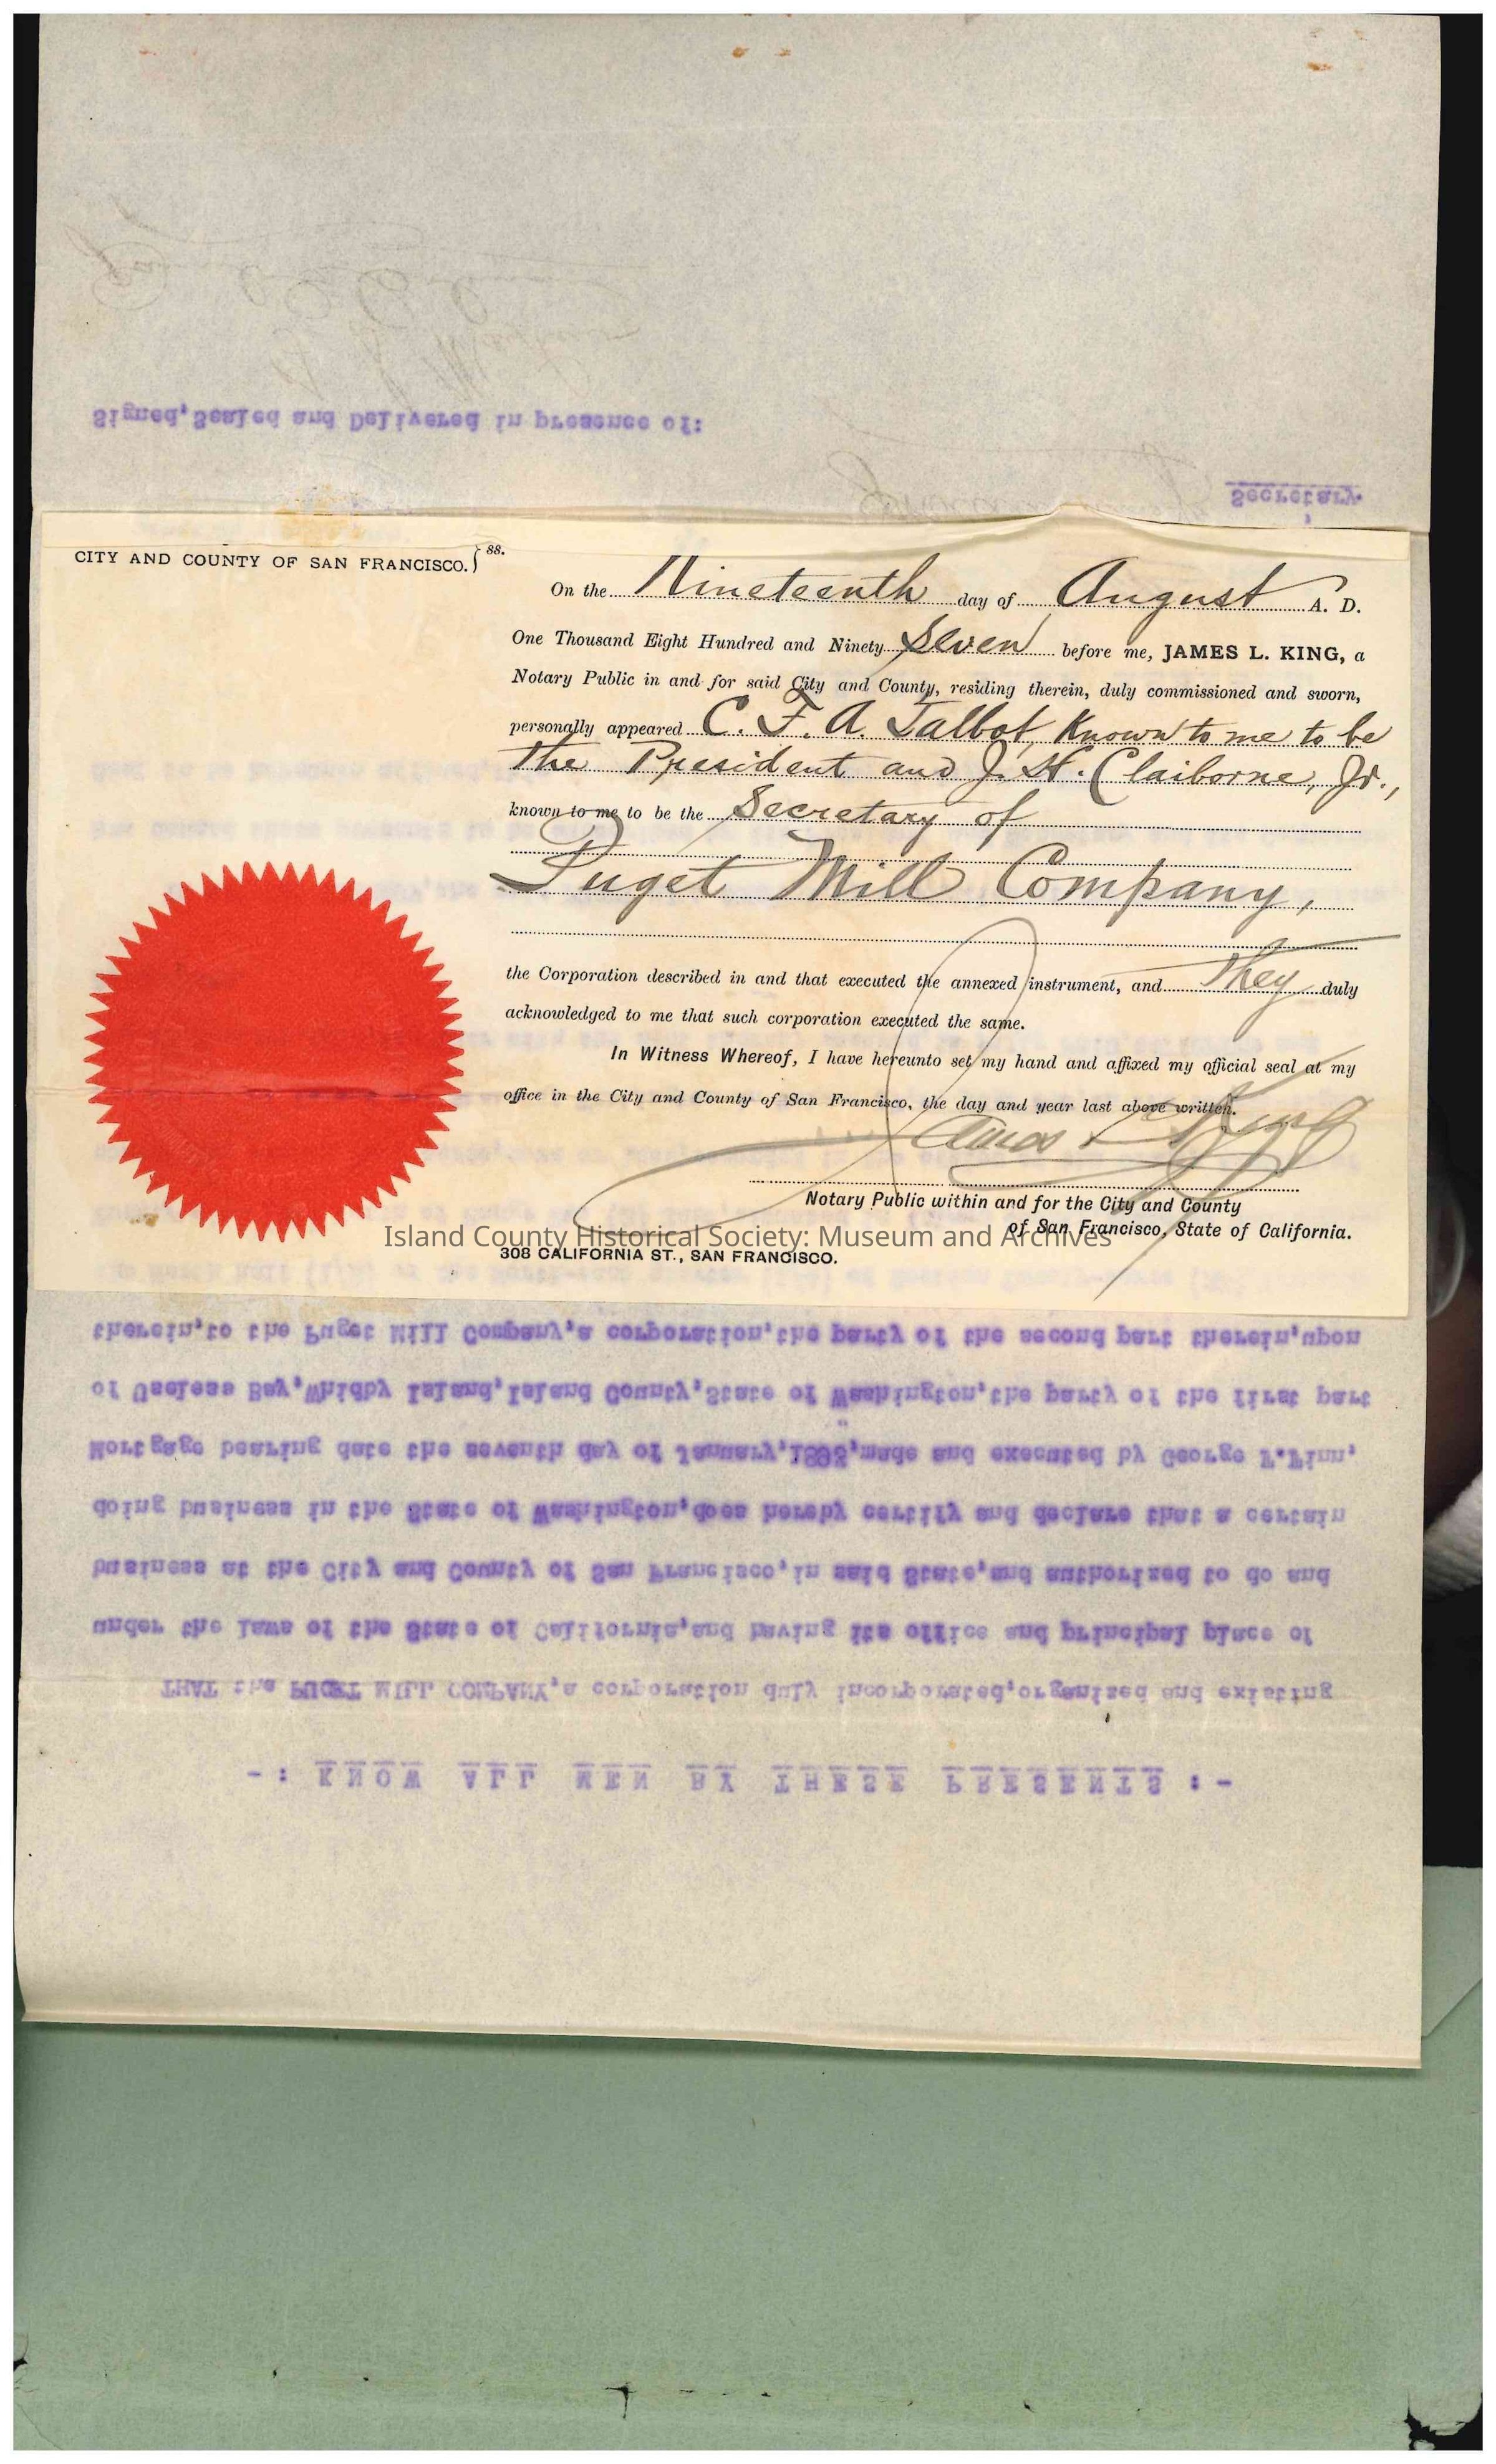 CITY AND COUNTY OF SAN FRANCISCO. } ss.
On the Nineteenth day of August A. D.
One Thousand Eight Hundred and Ninety Seven before me, JAMES L. KING, a
Notary Public in and for said City and County, residing therein, duly commissioned and sworn,
personally appeared C. F. A. Talbot, Known to me to be
the President and J. H. Claiborne, Jr.,
known to me to be the Secretary of
Puget Mill Company,
the Corporation described in and that executed the annexed instrument, and they duly
acknowledged to me that such corporation executed the same.
In Witness Whereof, I have hereunto set my hand and affixed my official seal at my
office in the City and County of San Francisco, the day and year last above written.
James L. King
Notary Public within and for the City and County
of San Francisco, State of California.
308 CALIFORNIA ST., SAN FRANCISCO.
Island County Historical Society: Museum and Archives
-: KNOW ALL MEN BY THESE PRESENTS :-
THAT the PUGET MILL COMPANY,a corporation duly incorporated,organized and existing
under the laws of the State of California,and having its office and principal place of
business at the City and County of San Francisco,in said State,and authorized to do and
doing business in the State of Washington,does hereby certify and declare that a certain
Mortgage bearing date the seventh day of January,1893,made and executed by George F.Finn,
of Useless Bay,Whidby Island,Island County,State of Washington,the party of the first part
therein,to the Puget Mill Company,a corporation,the party of the second part therein,upon
Secretary.
Signed,Sealed and Delivered in presence of: